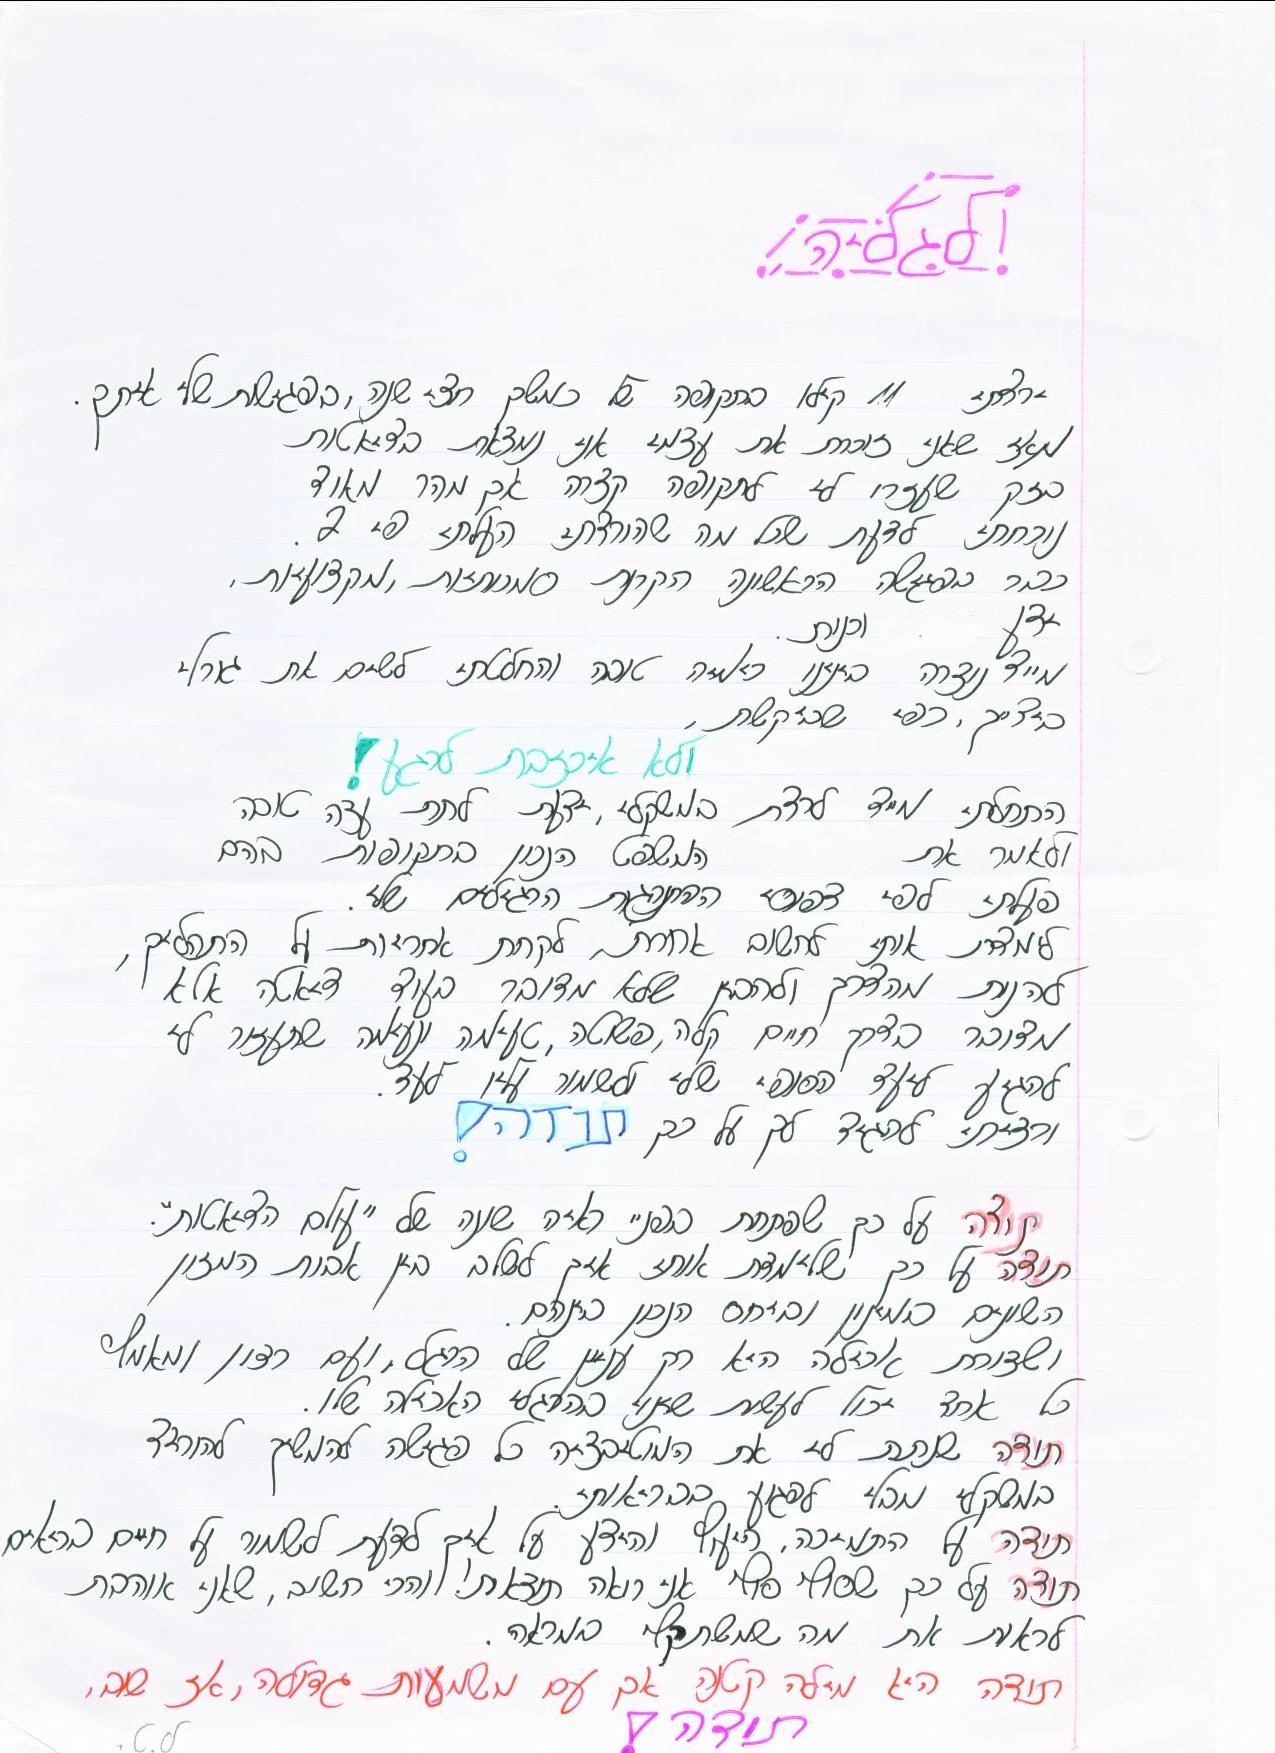 לגליה!
ירדתי 11 קילו בתקופה של כמשך חצי שנה, בפגישות שלי איתך.
מאז שאני זוכרת את עצמי אני נמצאת בדיאטות
בזק שעזרו לי לתקופה קצרה אך מהר מאוד
נוכחתי לדעת שכל מה שהורדתי העלתי פי 2.
כבר בפגישה הראשונה הקרנת סמכותיות, מקצועיות,
ידע וכנות.
מייד נוצרה ביננו כימיה טובה והחלטתי לשים את גורלי
בידייך, כפי שביקשת,
ולא איכזבת לרגע!
התחלתי מייד לרדת במשקלי, ידעת לתת עצה טובה
ולאמר את המשפט הנכון בתקופות בהם
פעלתי לפי דפוסי ההתנהגות הרגילים שלי.
לימדת אותי לחשוב אחרת, לקחת אחריות על התהליך,
להנות מהדרך ולהבין שלא מדובר בעוד דיאטה אלא
מדובר בדרך חיים קלה, פשוטה, טעימה ונעימה שתעזור לי
להגיע ליעד הסופי שלי ולשמור עליו לעד.
ורציתי להגיד לך על כך תודה!
תודה על כך שפתחת בפניי ראיה שונה של "עולם הדיאטות".
תודה על כך שלימדת אותי איך לשלב בין אבות המזון
השונים במינון וביחס הנכון בינהם.
ושצורת אכילה היא רק עניין של הרגל, ועם רצון ומאמץ
כל אחד יכול לעשות שינוי בהרגלי האכילה שלו.
תודה שנתת לי את המוטיבציה כל פגישה להמשיך להוריד
במשקלי מבלי לפגוע בבריאותי.
תודה על התמיכה, הייעוץ והידע על איך לדעת לשמור על חיים בריאים
תודה על כך שסוף סוף אני רואה תוצאות! והכי חשוב, שאני אוהבת
לראות את מה שמשתקף במראה.
תודה היא מילה קטנה אך עם משמעות גדולה, אז שוב,
תודה!
ל.ט.